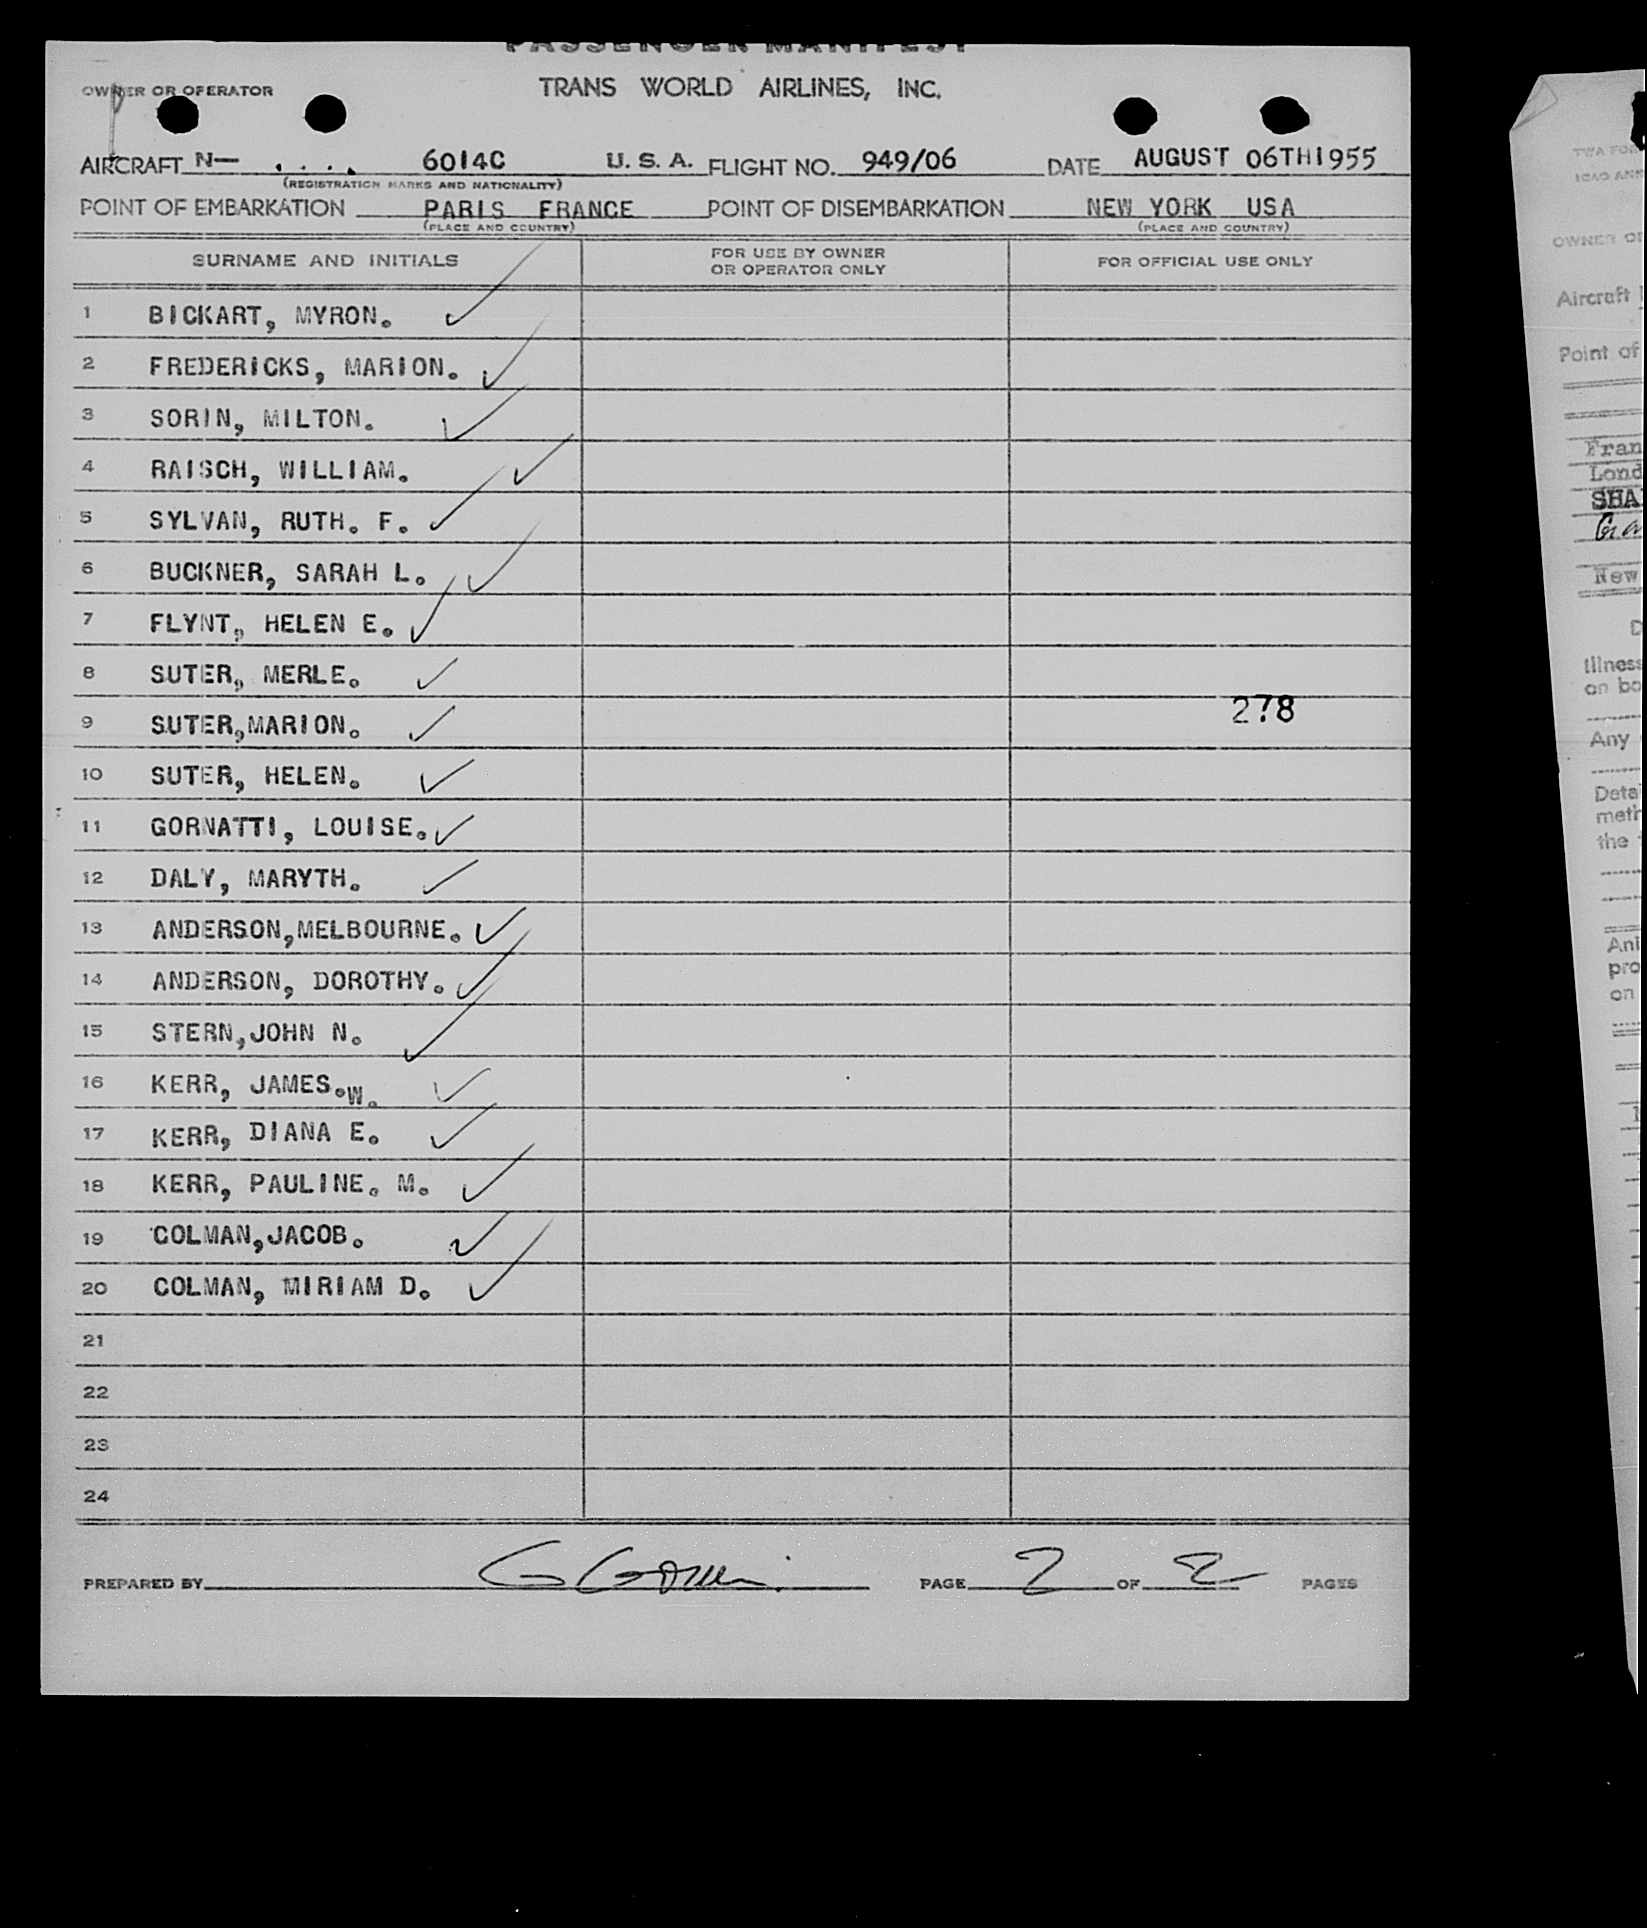 PASSENGER MANIFEST
OWNER OR OPERATOR
TRANS WORLD AIRLINES, INC.
AIRCRAFT N— . . . . 6014C U. S. A. FLIGHT NO. 949/06 DATE AUGUST 06TH1955
(REGISTRATION MARKS AND NATIONALITY)
POINT OF EMBARKATION PARIS FRANCE POINT OF DISEMBARKATION NEW YORK USA
(PLACE AND COUNTRY) (PLACE AND COUNTRY)
SURNAME AND INITIALS FOR USE BY OWNER OR OPERATOR ONLY FOR OFFICIAL USE ONLY
1 BICKART, MYRON.
2 FREDERICKS, MARION.
3 SORIN, MILTON.
4 RAISCH, WILLIAM.
5 SYLVAN, RUTH. F.
6 BUCKNER, SARAH L.
7 FLYNT, HELEN E.
8 SUTER, MERLE.
278
9 SUTER,MARION.
10 SUTER, HELEN.
11 GORNATTI, LOUISE.
12 DALY, MARYTH.
13 ANDERSON,MELBOURNE.
14 ANDERSON, DOROTHY.
15 STERN,JOHN N.
16 KERR, JAMES.W.
17 KERR, DIANA E.
18 KERR, PAULINE. M.
19 COLMAN,JACOB.
20 COLMAN, MIRIAM D.
21
22
23
24
PREPARED BY PAGE 2 OF 2 PAGES
TWA FOR
ICAO ANN
OWNER O
Aircraft
Point of
Fran
Lond
SHA
New
D
Illness
on bo
Any
Deta
meth
the
Ani
pro
on